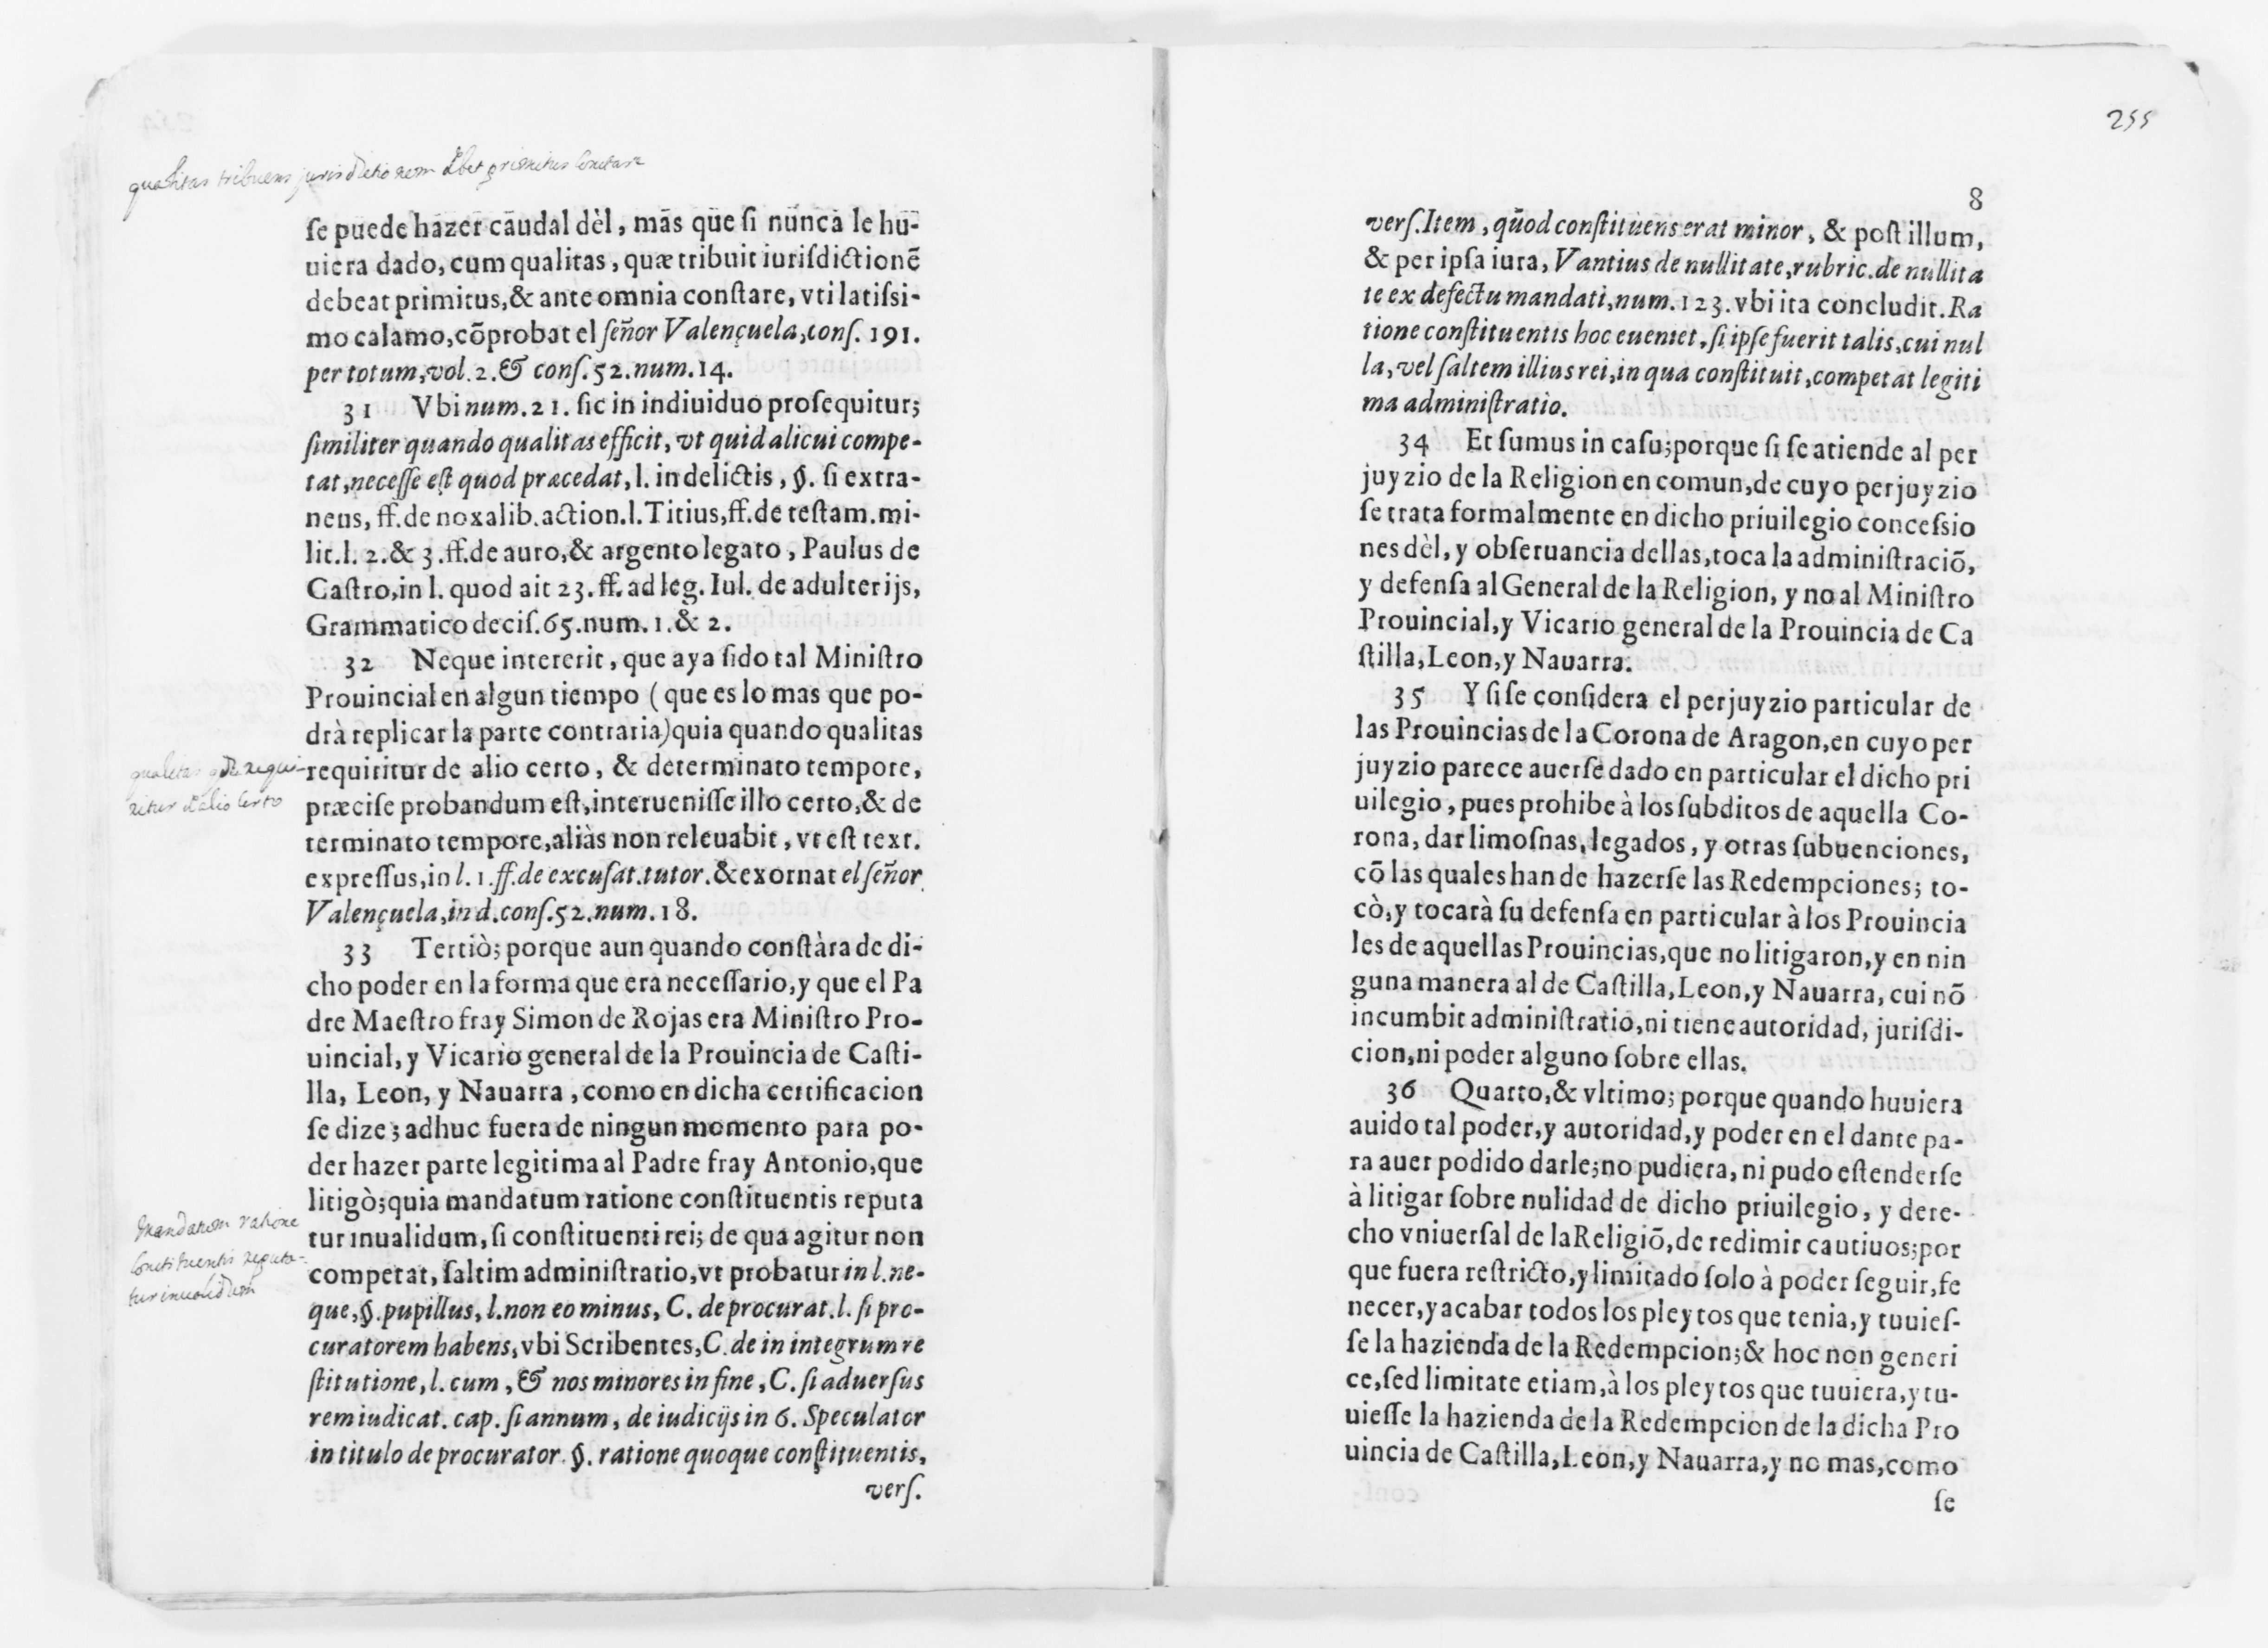 qualitas tribuens jurisdictionem debet primitus constare
se puede hazer caudal dèl, mas que si nunca le hu-
uiera dado, cum qualitas, quæ tribuit iurisdictionẽ
debeat primitus, & ante omnia constare, vti latissi-
mo calamo, cõprobat el señor Valençuela, cons. 191.
per totum, vol. 2. & cons. 52. num. 14.
31 Vbi num. 21. sic in indiuiduo prosequitur;
similiter quando qualitas efficit, vt quid alicui compe-
tat, necesse est quod præcedat, l. in delictis, §. si extra-
neus, ff. de noxalib. action. l. Titius, ff. de testam. mi-
lit. l. 2. & 3. ff. de auro, & argento legato, Paulus de
Castro, in l. quod ait 23. ff. ad leg. Iul. de adulterijs,
Grammatico decis. 65. num. 1. & 2.
32 Neque intererit, que aya sido tal Ministro
Prouincial en algun tiempo (que es lo mas que po-
drà replicar la parte contraria) quia quando qualitas
qualitas qdo requi-
requiritur de alio certo, & determinato tempore,
ritur de alio certo
præcise probandum est, interuenisse illo certo, & de
terminato tempore, aliàs non releuabit, vt est text.
expressus, in l. 1. ff. de excusat. tutor. & exornat el señor
Valençuela, in d. cons. 52. num. 18.
33 Tertiò; porque aun quando constàra de di-
cho poder en la forma que era necessario, y que el Pa
dre Maestro fray Simon de Rojas era Ministro Pro-
uincial, y Vicario general de la Prouincia de Casti-
lla, Leon, y Nauarra, como en dicha certificacion
se dize; adhuc fuera de ningun momento para po-
der hazer parte legitima al Padre fray Antonio, que
litigò; quia mandatum ratione constituentis reputa
mandatum ratione
constituentis reputa-
tur inualidum
tur inualidum, si constituenti rei; de qua agitur non
competat, saltim administratio, vt probatur in l. ne-
que, §. pupillus, l. non eo minus, C. de procurat. l. si pro-
curatorem habens, vbi Scribentes, C. de in integrum re
stitutione, l. cum, & nos minores in fine, C. si aduersus
rem iudicat. cap. si annum, de iudicijs in 6. Speculator
in titulo de procurator. §. ratione quoque constituentis,
vers.
255
8
vers. Item, quod constituens erat minor, & post illum,
& per ipsa iura, Vantius de nullitate, rubric. de nullita
te ex defectu mandati, num. 123. vbi ita concludit. Ra
tione constituentis hoc eueniet, si ipse fuerit talis, cui nul
la, vel saltem illius rei, in qua constituit, competat legiti
ma administratio.
34 Et sumus in casu; porque si se atiende al per
juyzio de la Religion en comun, de cuyo perjuyzio
se trata formalmente en dicho priuilegio concessio
nes dèl, y obseruancia dellas, toca la administraciõ,
y defensa al General de la Religion, y no al Ministro
Prouincial, y Vicario general de la Prouincia de Ca
stilla, Leon, y Nauarra.
35 Y si se considera el perjuyzio particular de
las Prouincias de la Corona de Aragon, en cuyo per
juyzio parece auerse dado en particular el dicho pri
uilegio, pues prohibe à los subditos de aquella Co-
rona, dar limosnas, legados, y otras subuenciones,
cõ las quales han de hazerse las Redempciones; to-
cò, y tocarà su defensa en particular à los Prouincia
les de aquellas Prouincias, que no litigaron, y en nin
guna manera al de Castilla, Leon, y Nauarra, cui nõ
incumbit administratio, ni tiene autoridad, jurisdi-
cion, ni poder alguno sobre ellas.
36 Quarto, & vltimo; porque quando huuiera
auido tal poder, y autoridad, y poder en el dante pa-
ra auer podido darle; no pudiera, ni pudo estenderse
à litigar sobre nulidad de dicho priuilegio, y dere-
cho vniuersal de la Religiõ, de redimir cautiuos; por
que fuera restricto, y limitado solo à poder seguir, fe
necer, y acabar todos los pleytos que tenia, y tuuies-
se la hazienda de la Redempcion; & hoc non generi
ce, sed limitate etiam, à los pleytos que tuuiera, y tu-
uiesse la hazienda de la Redempcion de la dicha Pro
uincia de Castilla, Leon, y Nauarra, y no mas, como
se